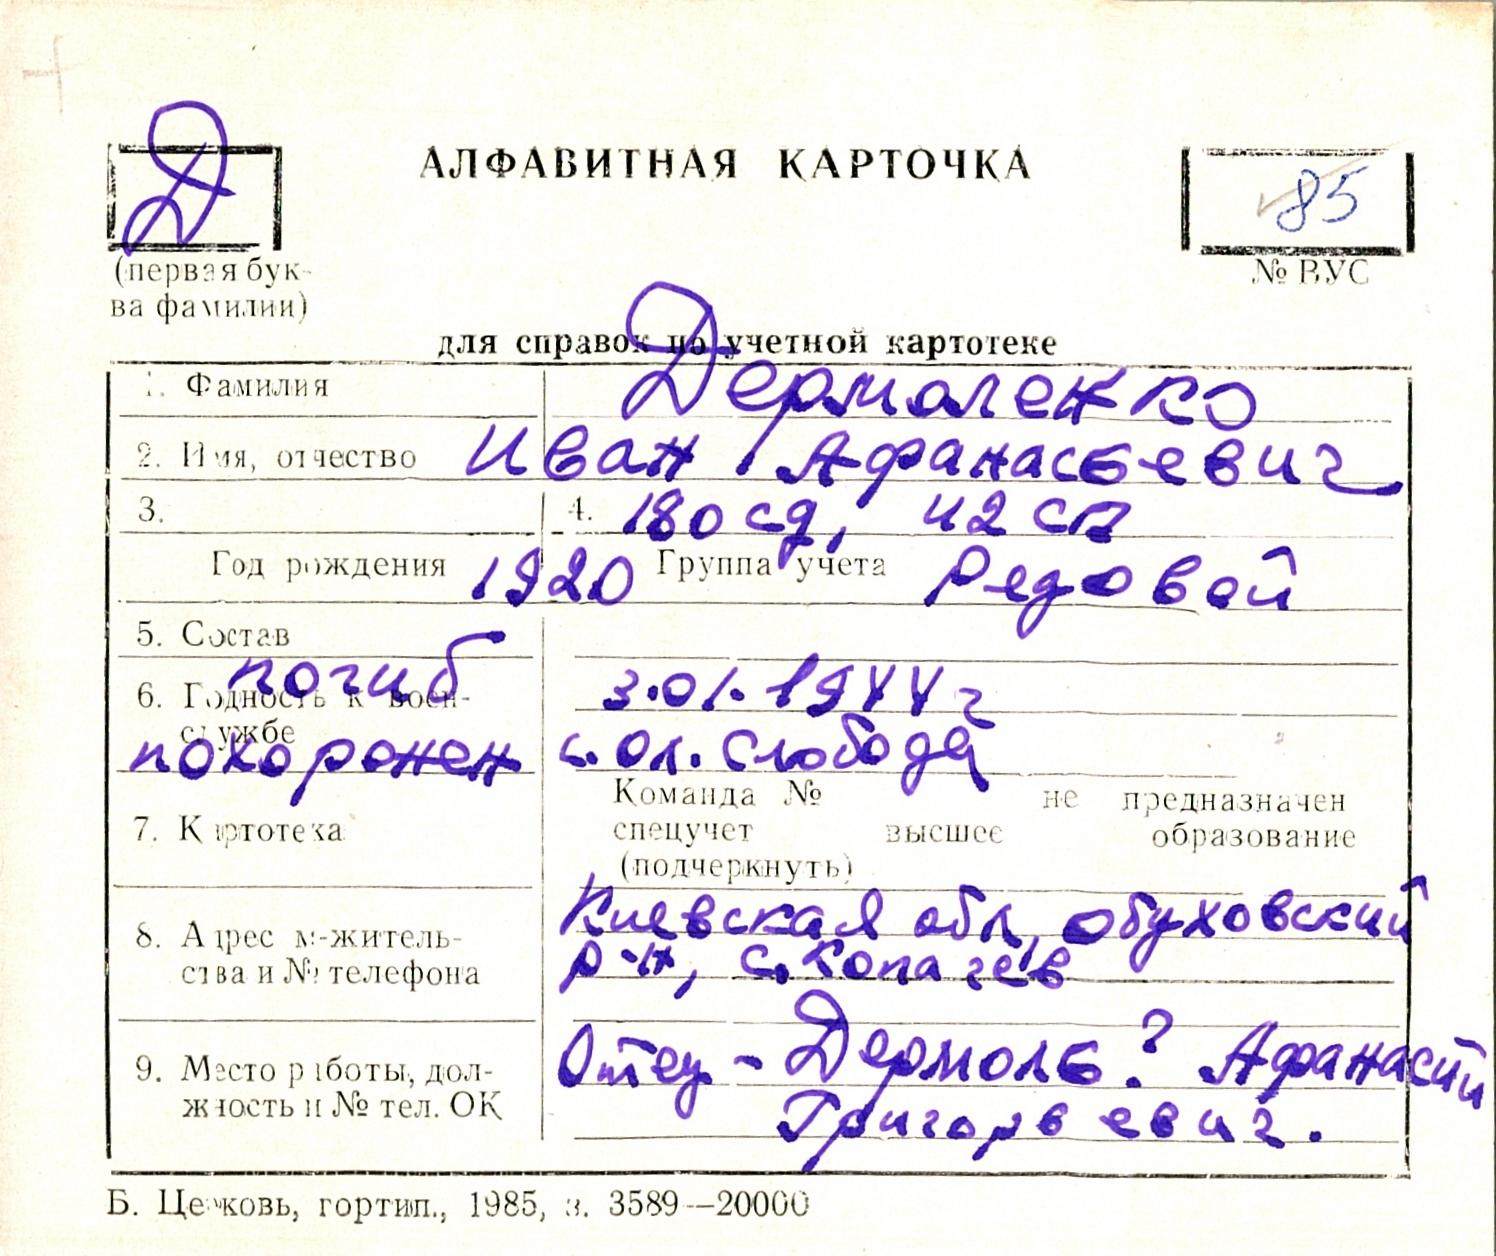 Д
АЛФАВИТНАЯ КАРТОЧКА
85
(первая бук-
ва фамилии)
№ ВУС
для справок по учетной картотеке
1. Фамилия Дермоленко
2. Имя, отчество Иван Афанасьевич
3. 4. 180 сд, 42 сп
Год рождения 1920 Группа учета Рядовой
5. Состав
погиб 3.01.1944 г
6. Годность к воен-
службе
похоронен с. Ол. Слобода
Команда № не предназначен
7. Картотека спецучет высшее образование
(подчеркнуть)
Киевская обл, Обуховский
8. Адрес м-житель-
ства и № телефона р-н, с. Копачев
Отец - Дермоль? Афанасий
9. Место работы, дол-
жность и № тел. ОК Григорьевич.
Б. Церковь, гортип., 1985, з. 3589—20000